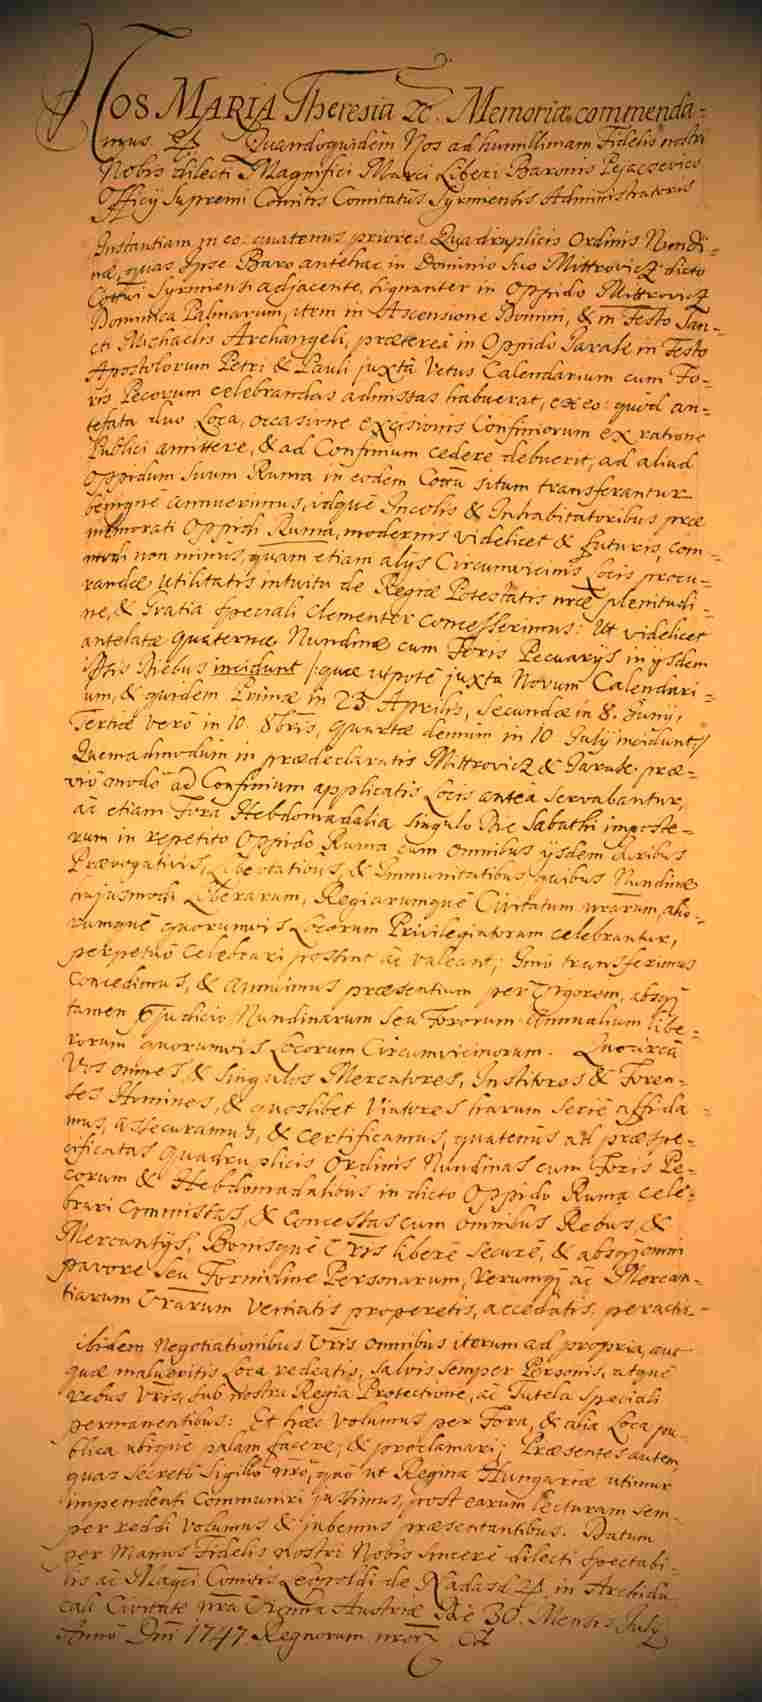 NOS MARIA Theresia &c. Memoriæ commenda-
mus &. Quandoquidem Nos ad humillimam Fidelis nostri
Nobis dilecti Magnifici Marci Liberi Baronis Pejacsevics
Officij Supremi Comitis Comitatûs Syrmiensis Administratoris
Instantiam in eo: quatenus priores Quadruplicis Ordinis Nundi-
næ, quas Ipse Baro antehac in Dominio Suo Mittrovicz dicto
Cottui Syrmiensi adjacente, signanter in Oppido Mittrovicz
Dominica Palmarum, item in Ascensione Domini, & in Festo San-
cti Michaelis Archangeli, præterea in Oppido Jarak in Festo
Apostolorum Petri & Pauli juxtà Vetus Calendarium cum Fo-
ris Pecorum celebrandas admissas habuerat, ex eo: quod an-
tefata duo Loca, occasione excisionis Confiniorum ex ratione
Publici amittere, & ad Confinium cedere debuerit, ad aliud
Oppidum Suum Ruma in eodem Cottu situm transferantur
benignè annuerimus, idquè Incolis & Inhabitatoribus præ
memorati Oppidi Ruma, modernis videlicet & futuris, com-
modi non minus, quam etiam alijs Circumvicinis Locis procu-
randæ utilitatis intuitu de Regiæ Potestatis nræ plenitudi-
ne, & Gratia speciali clementer concesserimus: Ut videlicet
antelatæ quaternæ Nundinæ cum Foris Pecuarijs in ijsdem
istis Diebus incidunt /: quæ utpotè juxta Novum Calendari-
um, & quidem Primæ in 23 Aprilis, Secundæ in 8. Junij,
Tertiæ verò in 10. 8bris, quartæ demum in 10 Julij incidunt:/
Quemadmodum in prædeclaratis Mittrovicz & Jarak præ-
viô modô ad Confinium applicatis Locis anteà servabantur,
ac etiam Fora Hebdomadalia singulo Die Sabathi imposte-
rum in repetito Oppido Ruma cum omnibus ijsdem Juribus
Prærogativis, Libertatibus, & Immunitatibus quibus Nundinæ
cujusmodi Liberarum, Regiarumquè Civitatum nrarum, alio-
rumquè quorumvis Locorum Privilegiatorum celebrantur,
perpetuò celebrari possint ac valeant; Imò transferimus
Concedimus, & annuimus præsentium per Vigorem, absq3
tamen præjudicio Nundinarum seu Fororum Annualium libe-
rorum quorumvis Locorum Circumvicinorum. Quocircà
Vos omnes, & singulos Mercatores, Institores & Foren-
ses Homines, & quoslibet Viatores harum serie affida-
mus, assecuramus, & certificamus, quatenùs ad præspe-
cificatas quadruplicis Ordinis Nundinas cum Foris Pe-
corum & Hebdomadalibus in dicto Oppido Ruma cele-
brari commissas, & concessas cum omnibus Rebus, &
Mercantijs, Bonisquè Vris liberè securè, & absq3 omni
pavore seu Formidine Personarum, Rerumq3 ac Mercan-
tiarum Vrarum veniatis properetis, accedatis, peractis-
ibidem Negotiationibus Vris omnibus iterum ad propria, aut
quæ malueritis Loca redeatis, salvis semper Personis, atquè
rebus Vris, sub nostra Regia Protectione, ac Tutela speciali
permanentibus: Et hæc volumus per Fora, & alia Loca pu-
blica ubique palam facere, & proclamari; Præsentes autem,
quas Secretô Sigillô nrô, quô ut Regina Hungariæ utimur
impendenti communiri jussimus, post earum lecturam sem-
per reddi volumus & jubemus præsentantibus. Datum
per Manus Fidelis nostri Nobis sincerè dilecti spectabi-
lis ac Magci Comitis Leopoldi de Nadasd &. in Archidu-
cali Civitate nra Vienna Austriæ Die 30. Mensis July
Annô Dni 1747 Regnorum nror &